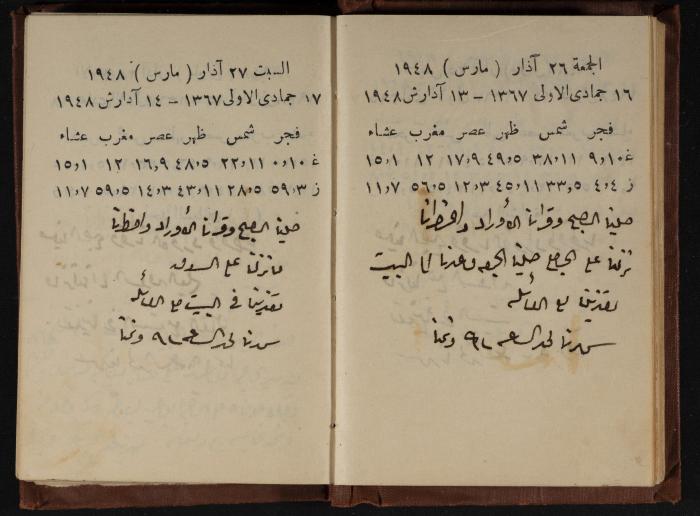 الجمعة ٢٦ آذار ( مارس ) ١٩٤٨
١٦ جمادى الاولى ١٣٦٧ – ١٣ آذارش ١٩٤٨
فجر شمس ظهر عصر مغرب عشاء
غ ٩٫١٠ ٣٨٫١١ ٤٩٫٥ ١٧٫٩ ١٢ ١٥٫١
ز ٤٫٤ ٣٣٫٥ ٤٥٫١١ ١٢٫٣ ٥٦٫٥ ١١٫٧
صلينا الصبح وقرانا الأوراد وافطرنا
نزلنا على الجامع صلينا الجمعه وعدنا الى البيت
تغدينا مع العائله
سهرنا لحد الساعه ٩ ونمنا
السبت ٢٧ آذار ( مارس ) ١٩٤٨
١٧ جمادى الاولى ١٣٦٧ – ١٤ آذارش ١٩٤٨
فجر شمس ظهر عصر مغرب عشاء
غ ٠٫١٠ ٢٢٫١١ ٤٨٫٥ ١٦٫٩ ١٢ ١٥٫١
ز ٥٩٫٣ ٢٨٫٥ ٤٣٫١١ ١٤٫٣ ٥٩٫٥ ١١٫٧
صلينا الصبح وقرانا الأوراد وافطرنا
نزلنا على السوق
تغدينا في البيت مع العائله
سهرنا لحد الساعه ٩ ونمنا